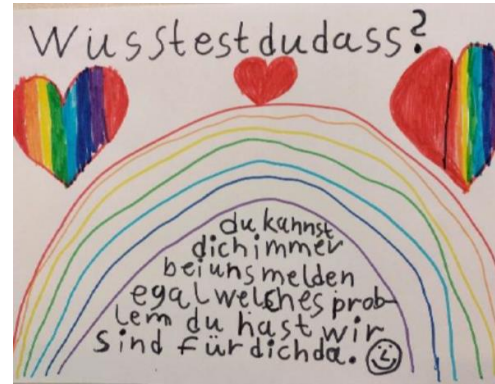 Wusstestdudass?
du kannst
dichimmer
beiunsmelden
egalwelchesprob-
lem du hast wir
sind fürdichda.